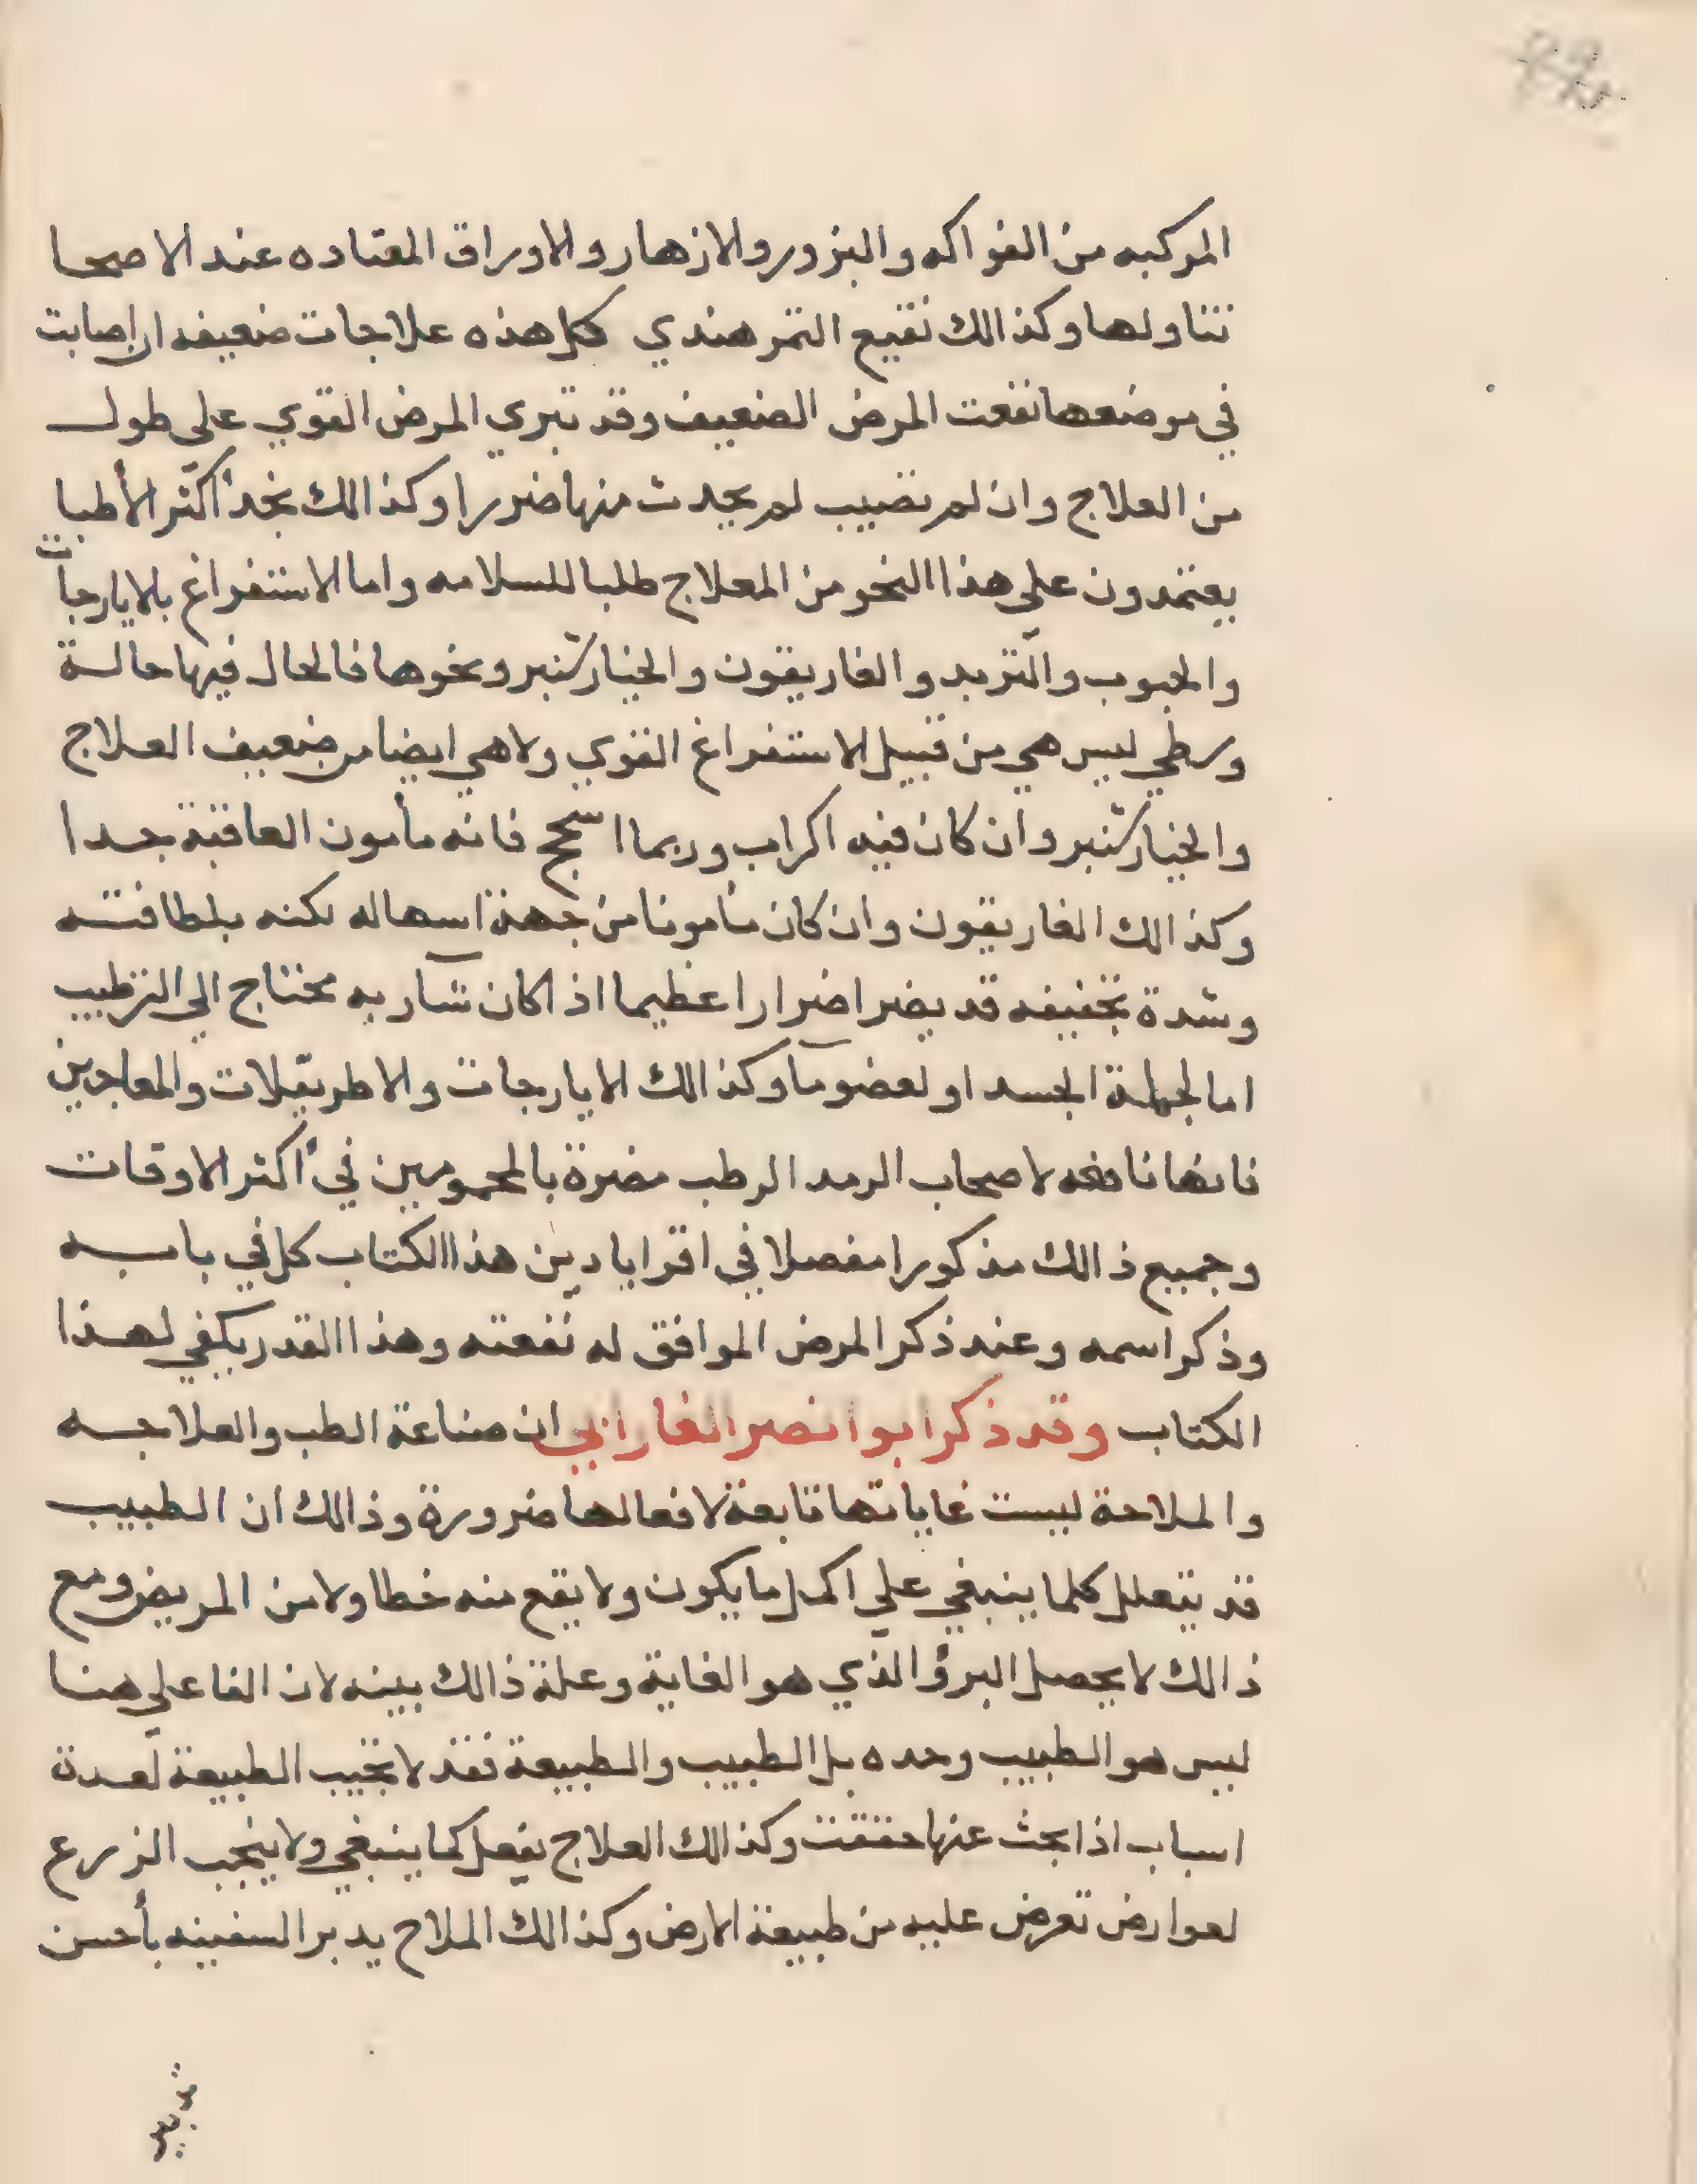 المركبه من الفواكه والبزور والازهار والاوراق المعتاده عند الاصحا
تناولها وكذالك نقيع التمر هندي كل هذه علاجات ضعيفه ان اصابت
في موضعها نفعت المرض الضعيف وقد تبري المرض القوي على طول
من العلاج وان لم تصيب لم يحدث منها ضررا وكذالك نجد أكثر الأطبا
يعتمدون علي هذا النحو من المعلاج طلبا للسلامه واما الاستفراغ بالايارجات
والحبوب والتربد والغاريقون والخيارشنبر ونحوها فالحال فيها حالة
وسطي ليس هي من قبيل الاستفراغ القوي ولاهي ايضا من ضعيف العلاج
والخيارشنبر وان كان فيه اكراب وربما اسحج فانه مأمون العاقبة جدا
وكذالك الغاريقون وان كان مأمونا من جهة اسهاله لكنه بلطافته
وشدة تجفيفه قد يضر اضرارا عظيما اذا كان شاربه محتاج الي الترطيب
اما لجملة الجسد او لعضو ما وكذالك الايارجات والاطريفلات والمعاجين
فانها نافعه لاصحاب الرمد الرطب مضرة بالمحمومين في أكثر الاوقات
وجميع ذالك مذكورا مفصلا في اقرابادين هذا الكتاب كل في بابه
وذكر اسمه وعند ذكر المرض الموافق له نفعته وهذا القدر يكفي لهذا
الكتاب وقد ذكر ابوا نصر الفارابي ان صناعة الطب والعلاجه
والملاحة ليست غاياتها تابعة لافعالها ضرورة وذالك ان الطبيب
قد يتعلل كلما ينبغي علي اكمل ما يكون ولا يقع منه خطا ولا من المريض ومع
ذالك لا يحصل البرؤ الذي هو الغاية وعلة ذالك بينه لان الفاعل هنا
ليس هو الطبيب وحده بل الطبيب والطبيعة فقد لا تجيب الطبيعة لعدة
اسباب اذا بحث عنها حققت وكذالك العلاج يفعل كما ينبغي ولا ينجب الزرع
لعوارض تعرض عليه من طبيعة الارض وكذالك الملاح يدبر السفينه بأحسن